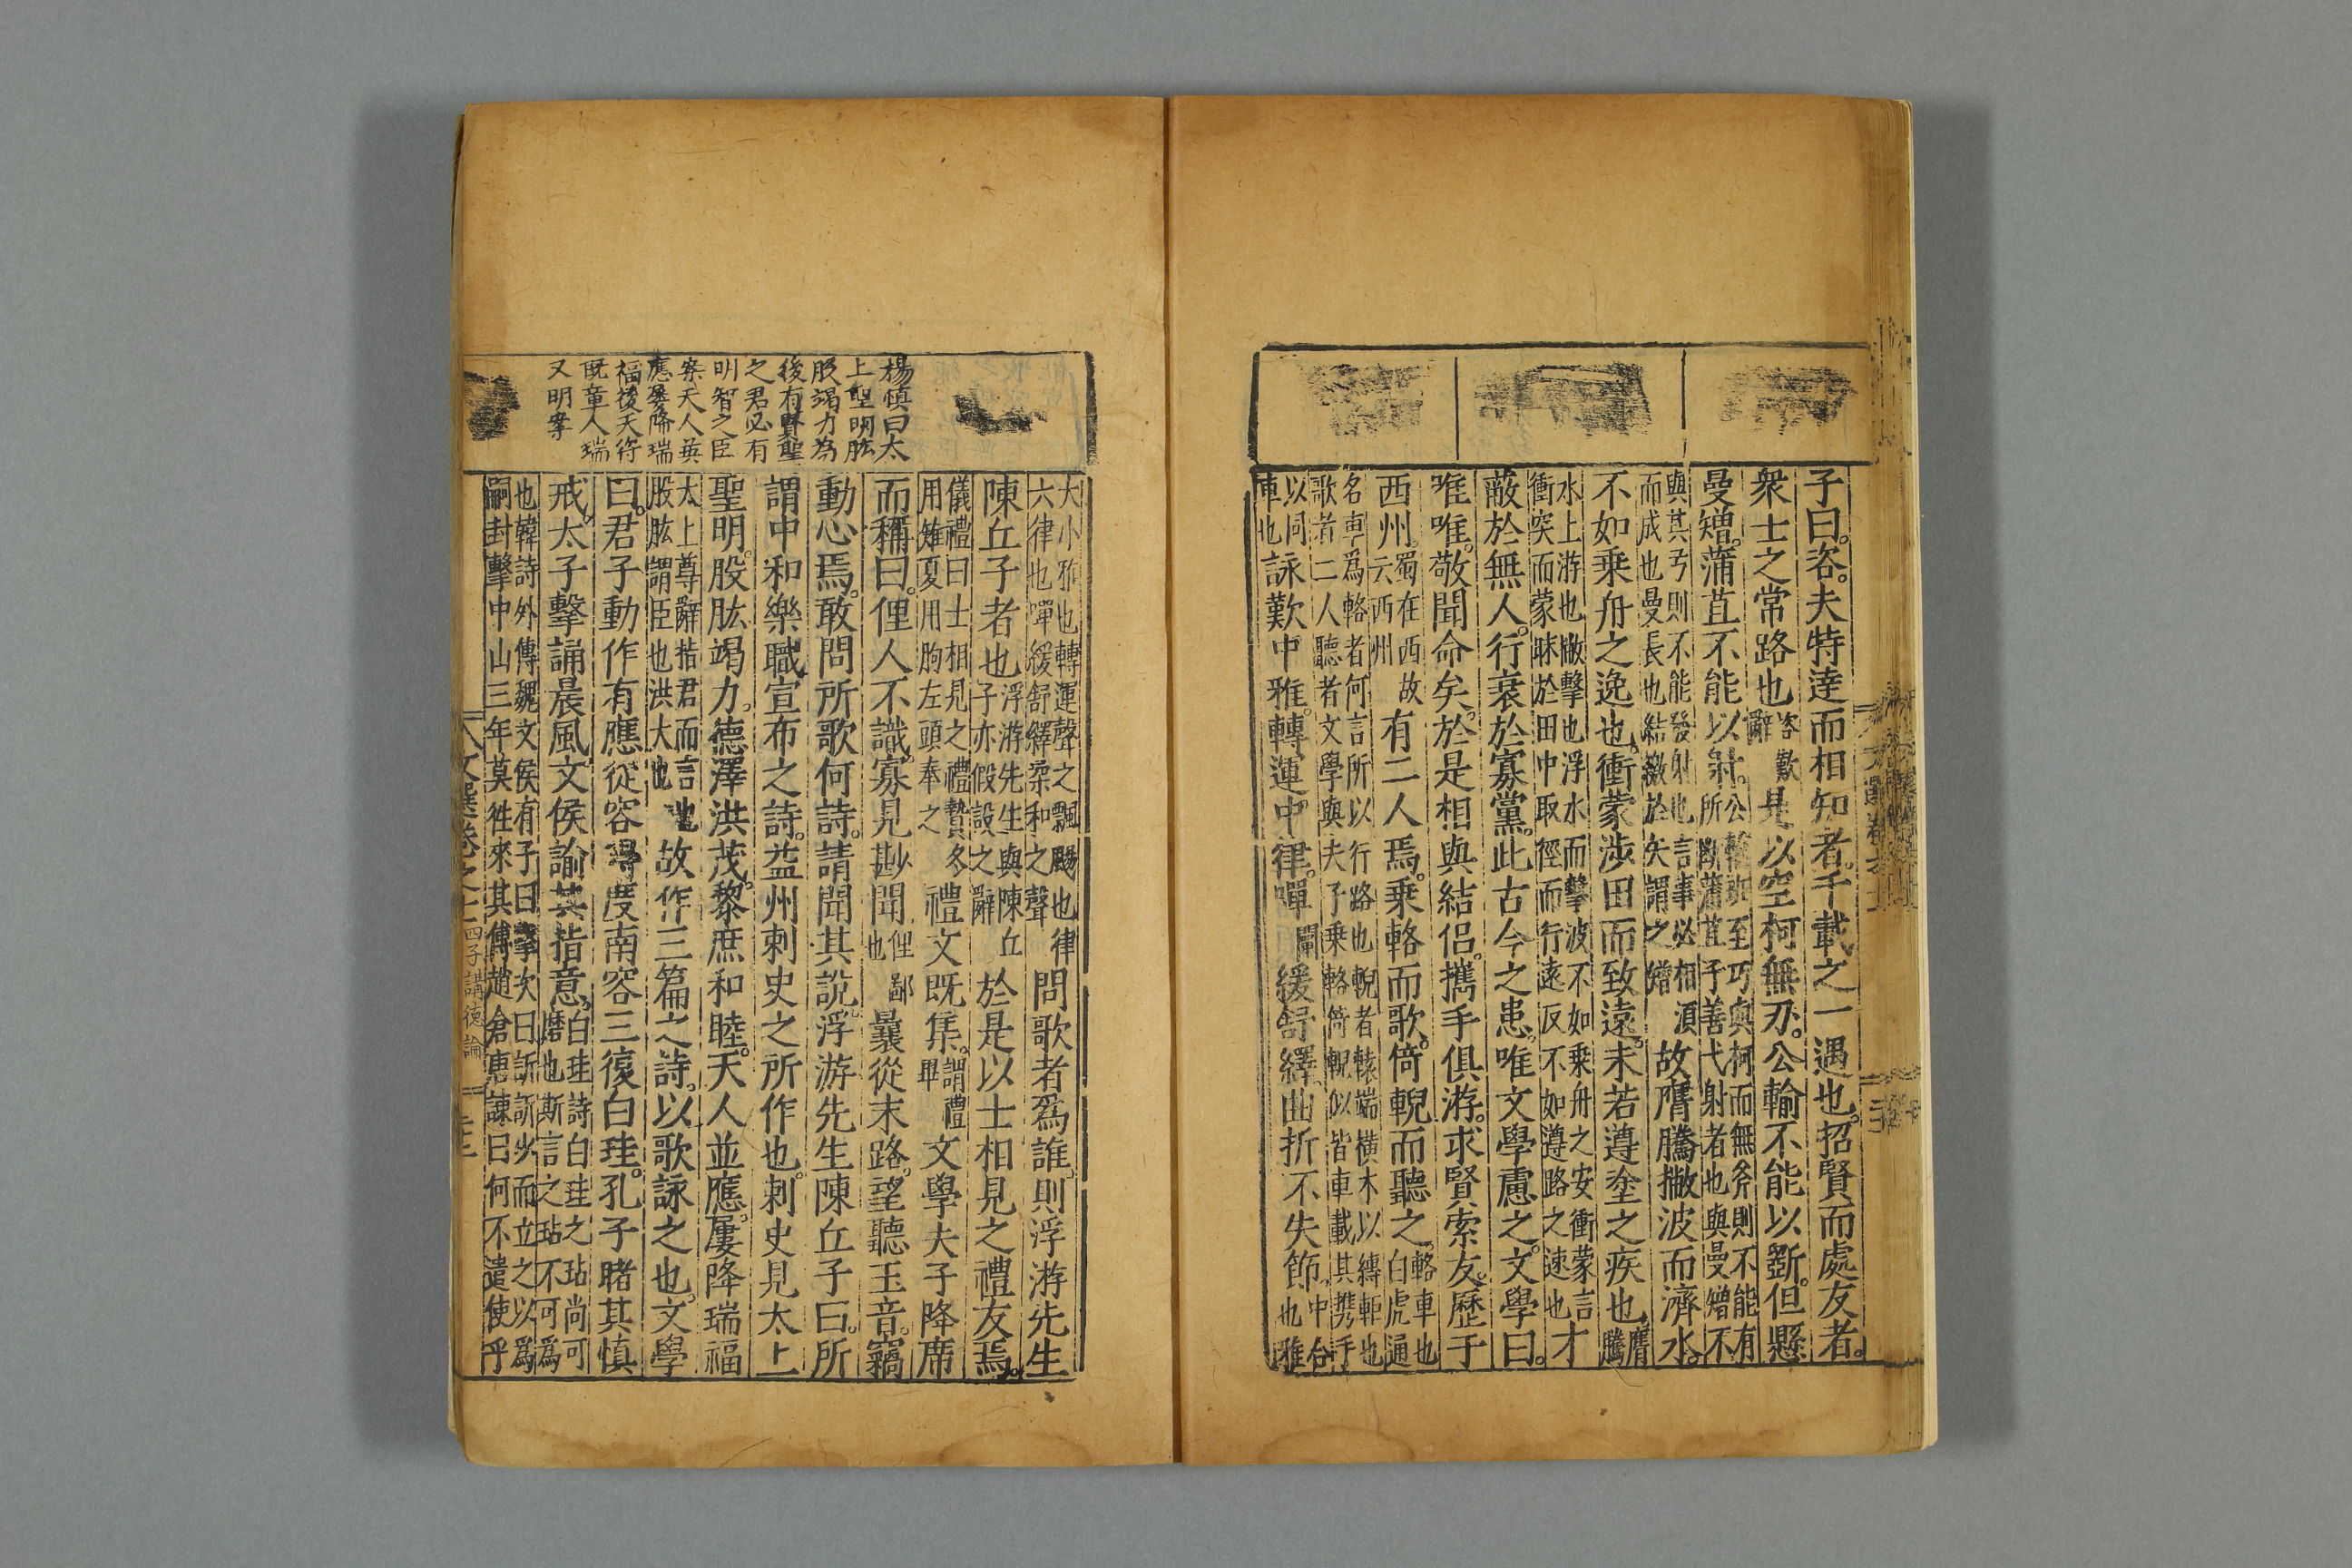 子曰。咨。夫特達而相知者。千載之一遇也。招賢而處友者。
衆士之常路也咨歎辭是以空柯無刃。公輸不能以斲。但懸
曼矰。蒲苴不能以射。公輸班至巧與柯而無斧則不能有所斷蒲苴子善弋射者也與曼矰不
與其弓則不能發射也言事必相湏而成也曼長也結繳於矢謂之矰故膺騰撇波而濟水。
不如乗舟之逸也。衝蒙涉田而致遠。未若遵塗之疾也膺騰
水上游也撇擊也浮水而擊波不如乗舟之安衝蒙言衝突而蒙昧於田中取徑而行遠反不如遵路之速也才
蔽於無人。行衰於寡黨。此古今之患。唯文學慮之。文學曰。
唯唯。敬聞命矣。於是相與結侶。攜手俱游。求賢索友。歷于
西州。蜀在西故云西州有二人焉。乗輅而歌。倚輗而聽之。輅車也白虎通
名車爲輅者何言所以行路也輗者轅端横木以縳軛也歌者二人聽者文學與夫子乗輅倚輗似皆車載其携手
以同車也詠歎中雅。轉運中律。嘽闡緩舒繹曲折不失節。中合也雅
大小雅也轉運聲之飄颺也律六律也嘽緩舒繹柔和之聲問歌者爲誰。則浮游先生
陳丘子者也浮游先生與陳丘子亦假設之辭於是以士相見之禮友焉。
儀禮曰士相見之禮贄冬用雉夏用朐左頭奉之禮文既集。謂禮畢文學夫子降席
而稱曰。俚人不識。寡見尠聞俚鄙也曩從末路。望聽玉音。竊
動心焉。敢問所歌何詩。請聞其說。浮游先生陳丘子曰。所
謂中和樂職宣布之詩。益州刺史之所作也。刺史見太上
聖明。股肱竭力。德澤洪茂。黎庶和睦。天人並應。屢降瑞福
太上尊辭指君而言也股肱謂臣也洪大也故作三篇之詩。以歌詠之也。文學
曰。君子動作有應從容得度南容三復白珪。孔子睹其慎
戒。太子擊誦晨風。文侯諭其指意。白珪詩白珪之玷尚可磨也斯言之玷不可爲
也韓詩外傳魏文侯有子曰擊次曰訴訴少而立之以爲嗣封擊中山三年莫徃來其傅趙倉唐諫曰何不遣使乎
楊慎曰太
上聖明肱
股竭力為
後有賢聖
之君必有
明智之臣
案天人英
應屢降瑞
福後天符
既章人瑞
又明案
文選卷之十
四子講德論